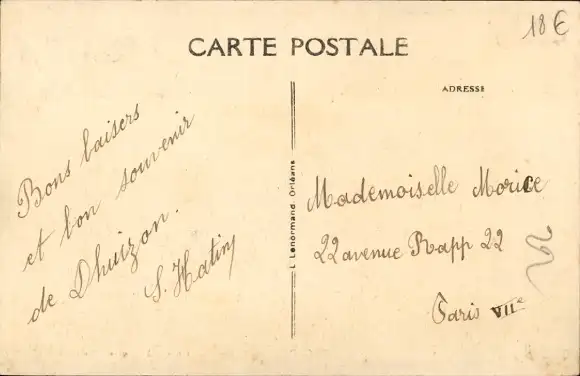 18€
CARTE POSTALE
ADRESSE
Bons baisers
et bon souvenir
de Dhuizon.
S. Hatin
L. Lenormand, Orléans
Mademoiselle Morice
22 avenue Rapp 22
Paris VIIe